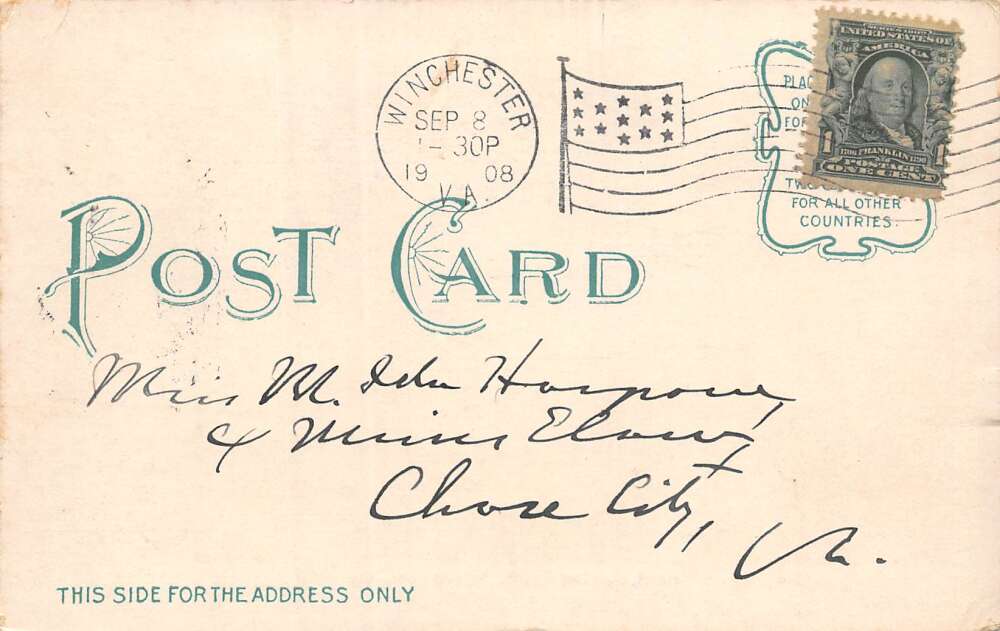 WINCHESTER
SEP 8
30P
19 08
VA.
PLAC
ON
FOR
SERIES 1902
UNITED STATES OF
AMERICA
1706 FRANKLIN 1790
1 POSTAGE 1
ONE CENT
TWO
FOR ALL OTHER
COUNTRIES.
POST CARD
Miss M. Ida
Chase City,
Va.
THIS SIDE FOR THE ADDRESS ONLY